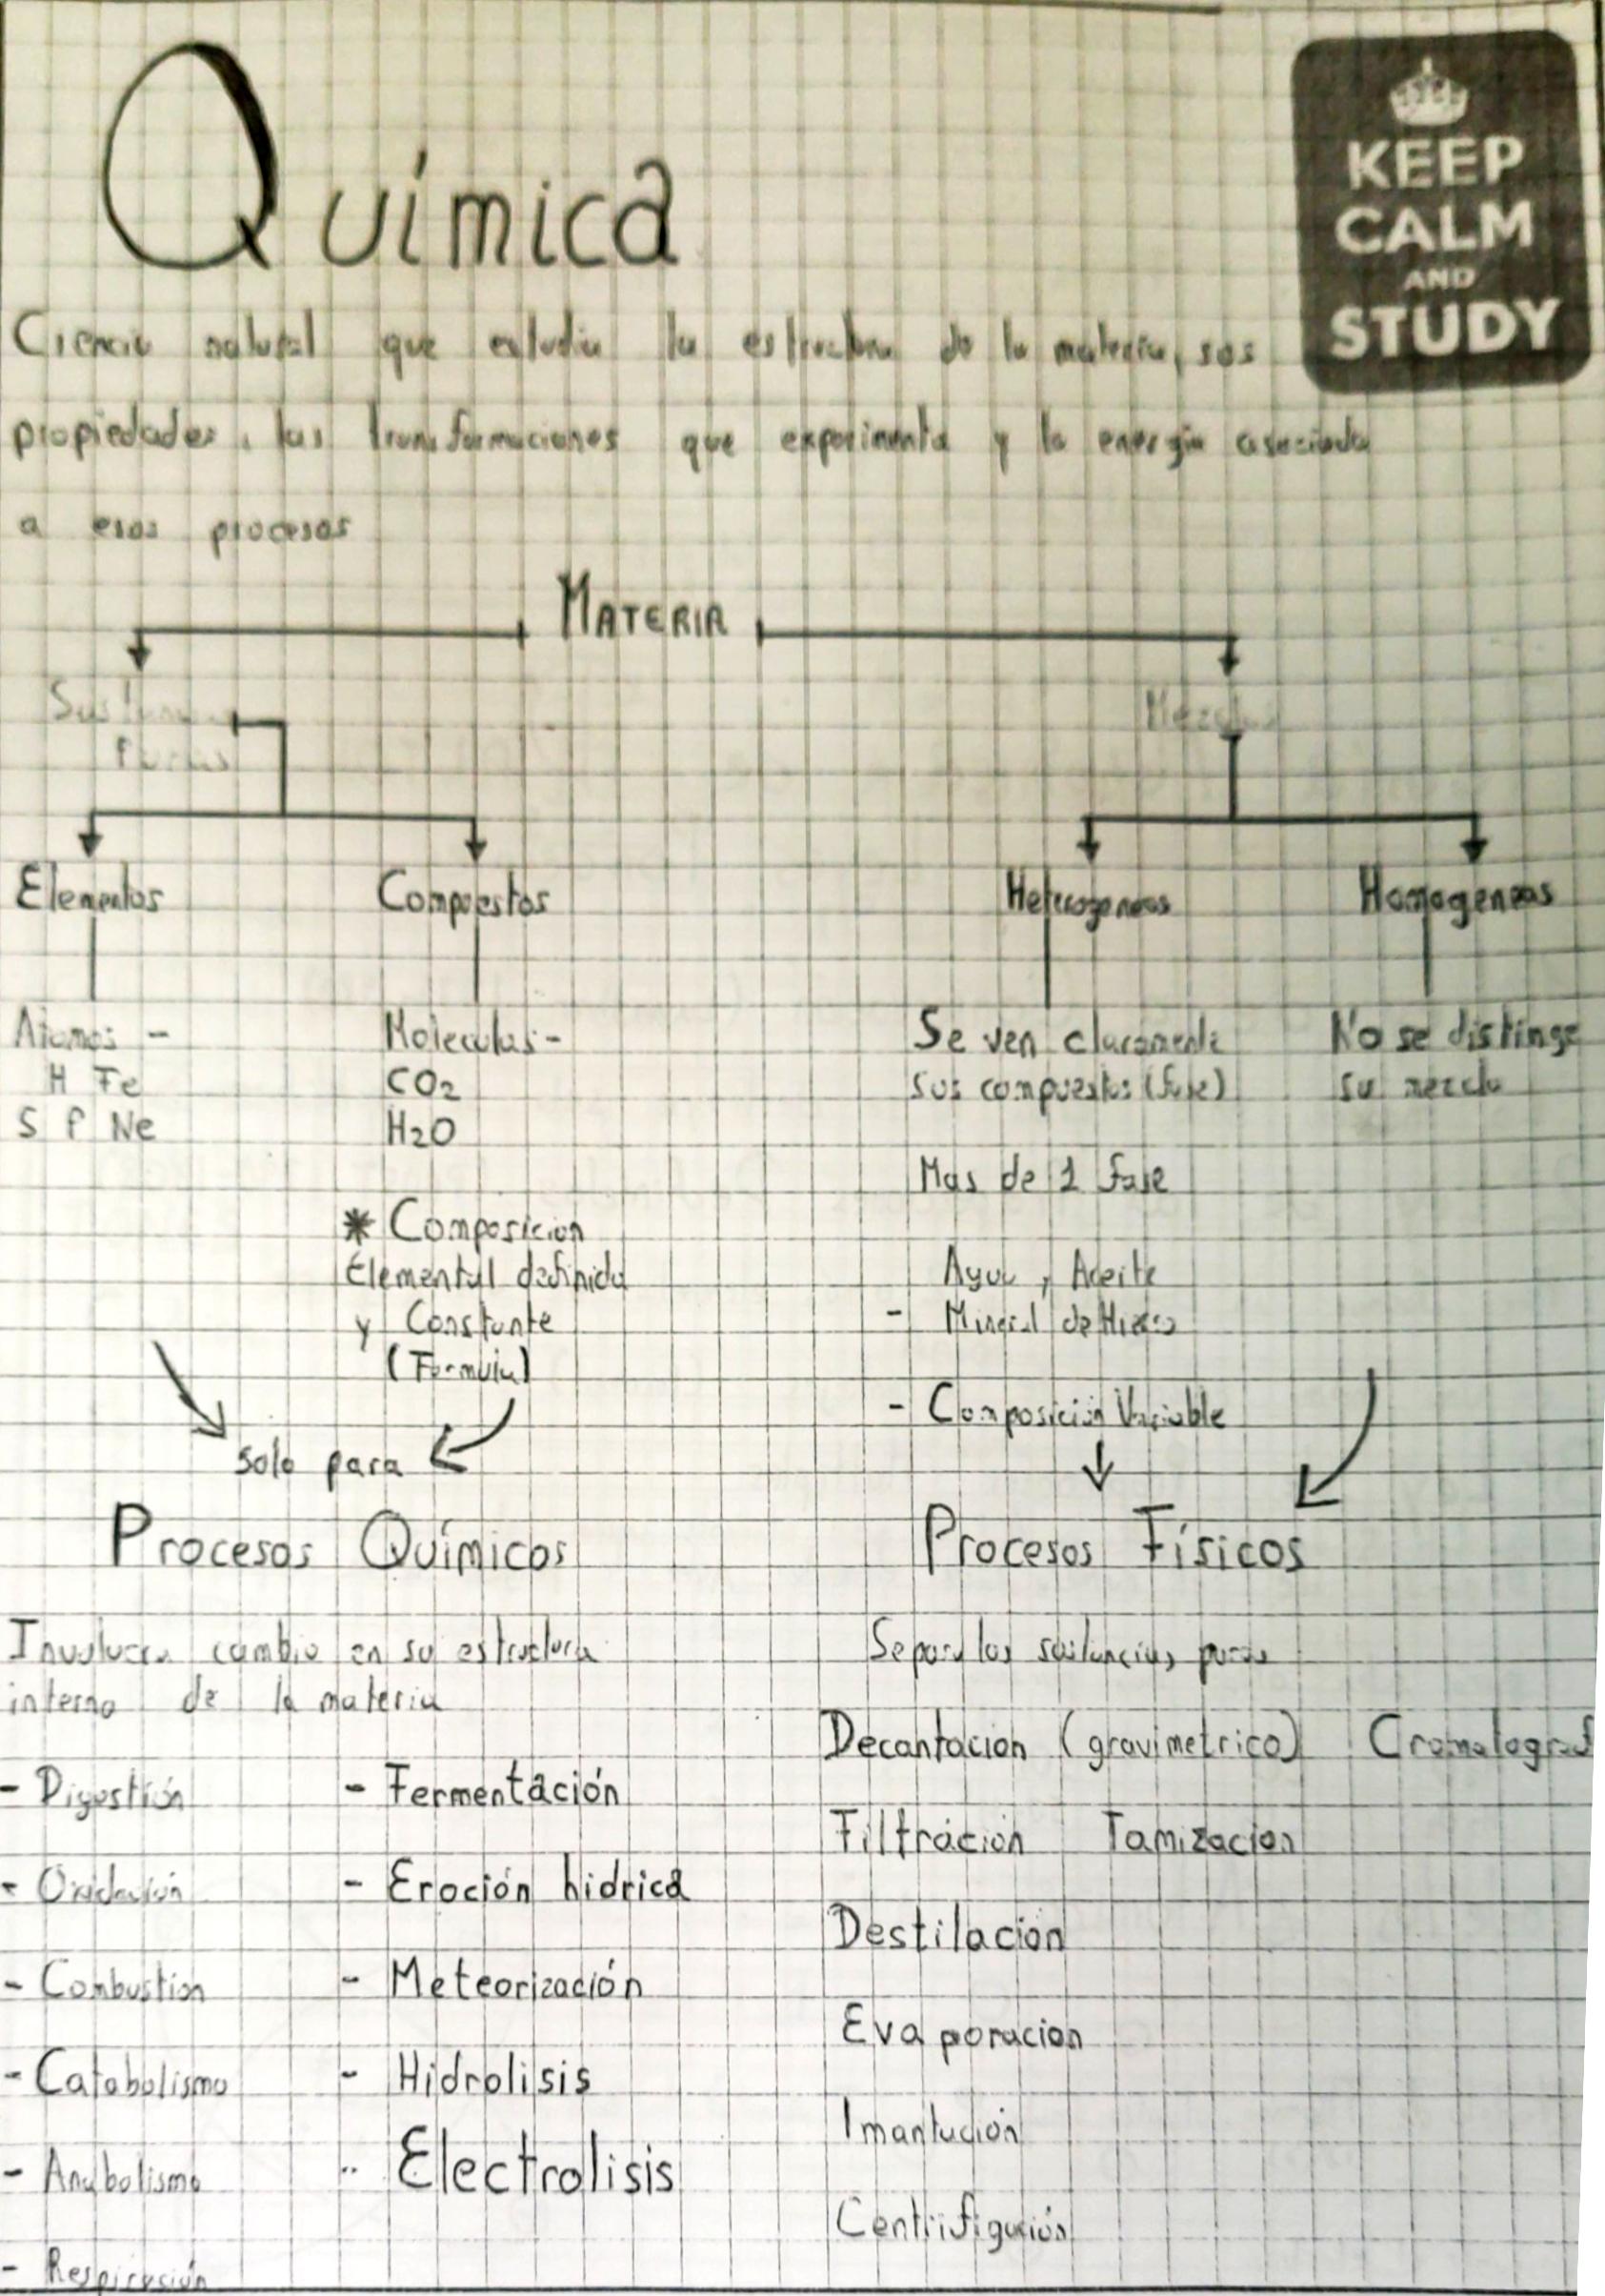 Química
KEEP
CALM
AND
STUDY
Ciencia natural que estudia la estructura de la materia, sus
propiedades, las transformaciones que experimenta y la energía asociada
a esos procesos
MATERIA
Sustancias
Puras
Mezclas
Elementos
Compuestos
Heterogeneas
Homogeneas
Atomos -
H Fe
S P Ne
Moleculas -
CO2
H2O
* Composicion
Elemental definida
y Constante
(Formula)
Se ven claramente
sus compuestos (fase)
Mas de 1 fase
Agua y Aceite
- Mineral de Hierro
- Composición Variable
No se distinge
su mezcla
solo para
Procesos Químicos
Involucra cambio en su estructura
interna de la materia
- Digestión
- Oxidación
- Combustion
- Catabolismo
- Anabolismo
- Respiración
- Fermentación
- Eroción hidrica
- Meteorización
- Hidrolisis
- Electrolisis
Procesos Físicos
Separa las sustancias puras
Decantacion (gravimetrico) Cromatograf
Filtración Tamizacion
Destilación
Evaporacion
Imantación
Centrifigación